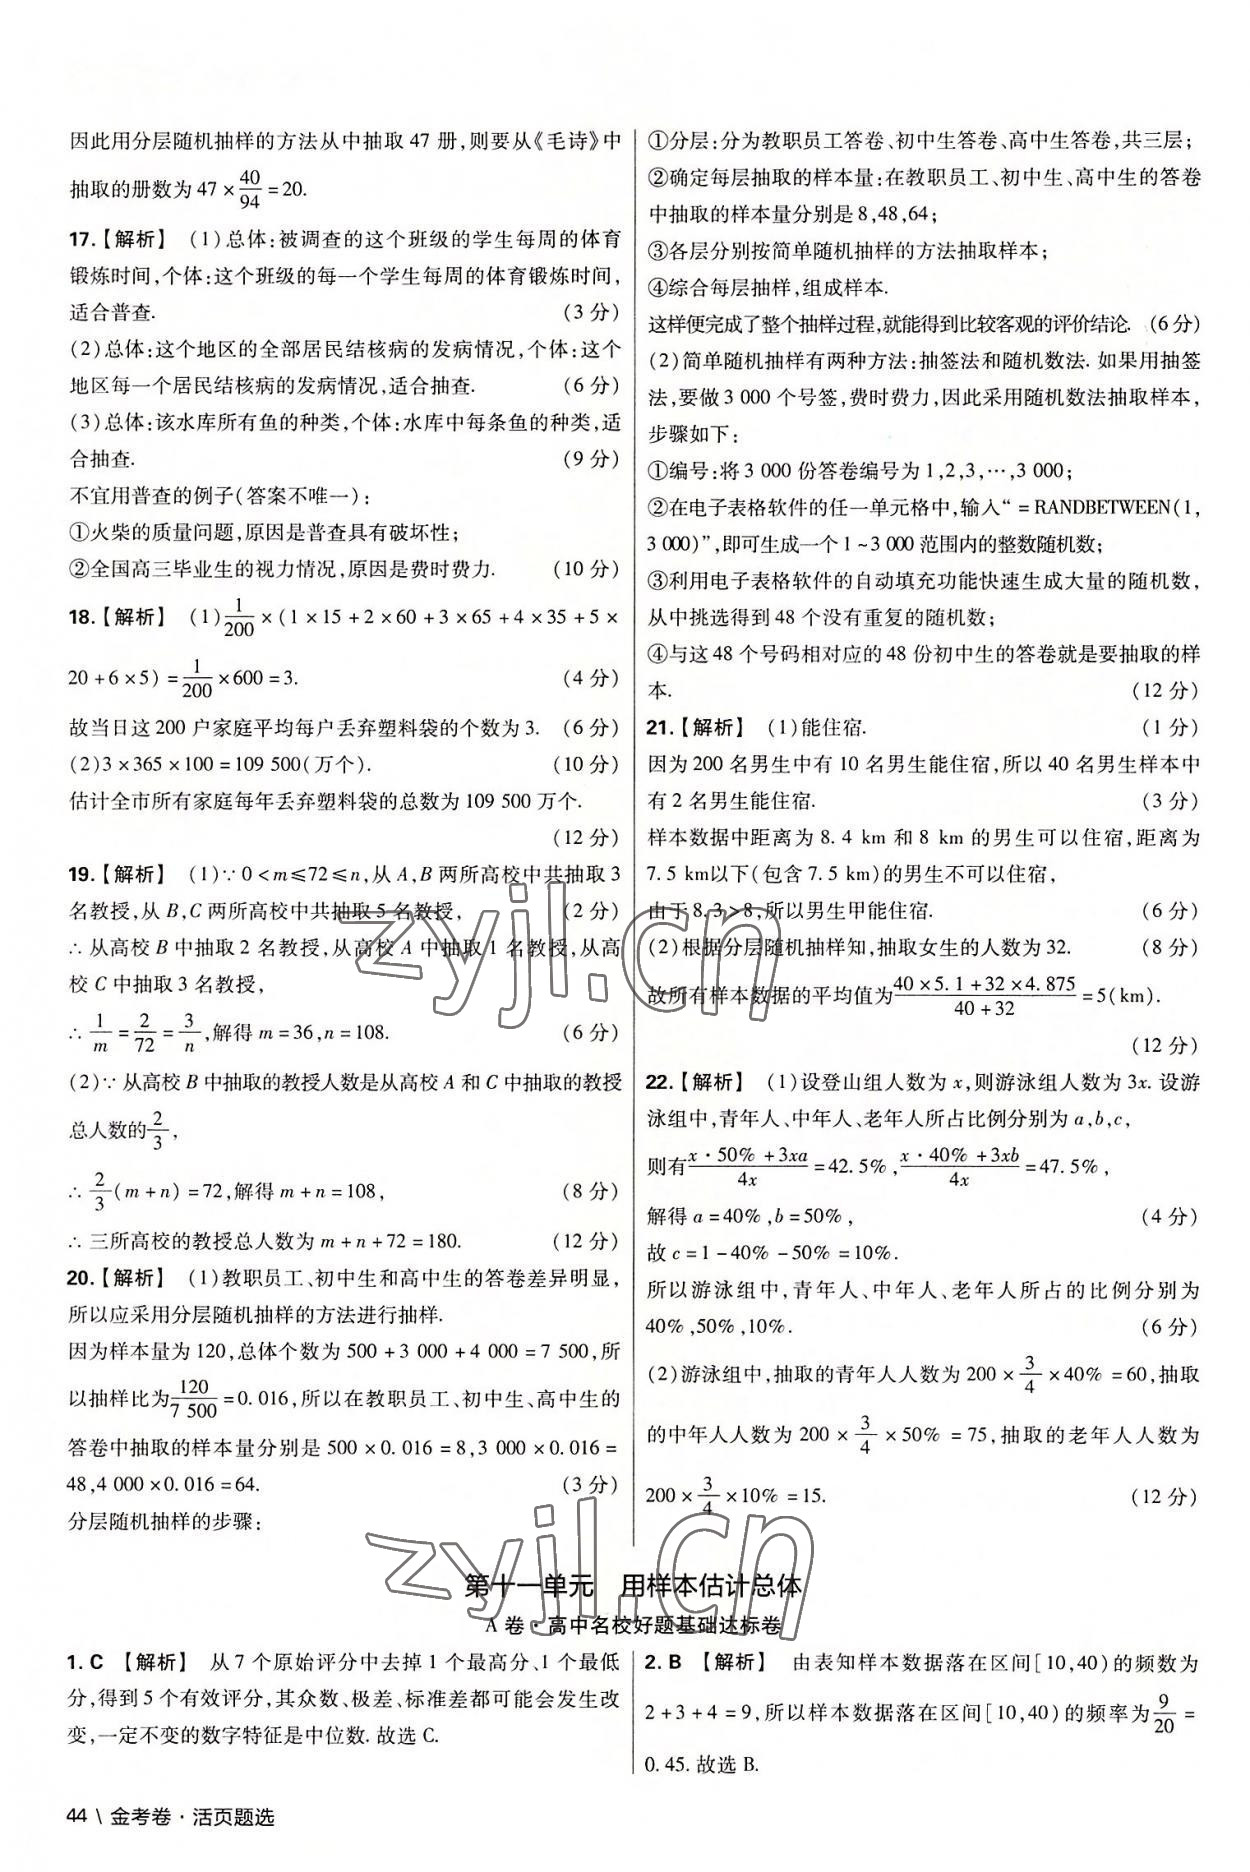 因此用分层随机抽样的方法从中抽取 47 册,则要从《毛诗》中
抽取的册数为 47 × 40/94 = 20.
17.【解析】 (1)总体:被调查的这个班级的学生每周的体育
锻炼时间,个体:这个班级的每一个学生每周的体育锻炼时间,
适合普查. (3 分)
(2)总体:这个地区的全部居民结核病的发病情况,个体:这个
地区每一个居民结核病的发病情况,适合抽查. (6 分)
(3)总体:该水库所有鱼的种类,个体:水库中每条鱼的种类,适
合抽查. (9 分)
不宜用普查的例子(答案不唯一):
①火柴的质量问题,原因是普查具有破坏性;
②全国高三毕业生的视力情况,原因是费时费力. (10 分)
18.【解析】 (1) 1/200 × (1 × 15 + 2 × 60 + 3 × 65 + 4 × 35 + 5 ×
20 + 6 × 5) = 1/200 × 600 = 3. (4 分)
故当日这 200 户家庭平均每户丢弃塑料袋的个数为 3. (6 分)
(2)3 × 365 × 100 = 109 500(万个). (10 分)
估计全市所有家庭每年丢弃塑料袋的总数为 109 500 万个.
(12 分)
19.【解析】 (1)∵ 0 < m ≤ 72 ≤ n,从 A,B 两所高校中共抽取 3
名教授,从 B,C 两所高校中共抽取 5 名教授, (2 分)
∴ 从高校 B 中抽取 2 名教授,从高校 A 中抽取 1 名教授,从高
校 C 中抽取 3 名教授,
∴ 1/m = 2/72 = 3/n,解得 m = 36,n = 108. (6 分)
(2)∵ 从高校 B 中抽取的教授人数是从高校 A 和 C 中抽取的教授
总人数的 2/3,
∴ 2/3(m + n) = 72,解得 m + n = 108, (8 分)
∴ 三所高校的教授总人数为 m + n + 72 = 180. (12 分)
20.【解析】 (1)教职员工、初中生和高中生的答卷差异明显,
所以应采用分层随机抽样的方法进行抽样.
因为样本量为 120,总体个数为 500 + 3 000 + 4 000 = 7 500,所
以抽样比为 120/7 500 = 0. 016,所以在教职员工、初中生、高中生的
答卷中抽取的样本量分别是 500 × 0. 016 = 8,3 000 × 0. 016 =
48,4 000 × 0. 016 = 64. (3 分)
分层随机抽样的步骤:
①分层:分为教职员工答卷、初中生答卷、高中生答卷,共三层;
②确定每层抽取的样本量:在教职员工、初中生、高中生的答卷
中抽取的样本量分别是 8,48,64;
③各层分别按简单随机抽样的方法抽取样本;
④综合每层抽样,组成样本.
这样便完成了整个抽样过程,就能得到比较客观的评价结论. (6 分)
(2)简单随机抽样有两种方法:抽签法和随机数法. 如果用抽签
法,要做 3 000 个号签,费时费力,因此采用随机数法抽取样本,
步骤如下:
①编号:将 3 000 份答卷编号为 1,2,3,⋯,3 000;
②在电子表格软件的任一单元格中,输入“ = RANDBETWEEN(1,
3 000)”,即可生成一个 1 ~ 3 000 范围内的整数随机数;
③利用电子表格软件的自动填充功能快速生成大量的随机数,
从中挑选得到 48 个没有重复的随机数;
④与这 48 个号码相对应的 48 份初中生的答卷就是要抽取的样
本. (12 分)
21.【解析】 (1)能住宿. (1 分)
因为 200 名男生中有 10 名男生能住宿,所以 40 名男生样本中
有 2 名男生能住宿. (3 分)
样本数据中距离为 8. 4 km 和 8 km 的男生可以住宿,距离为
7. 5 km以下(包含 7. 5 km)的男生不可以住宿,
由于 8. 3 > 8,所以男生甲能住宿. (6 分)
(2)根据分层随机抽样知,抽取女生的人数为 32. (8 分)
故所有样本数据的平均值为 (40 × 5. 1 + 32 × 4. 875)/(40 + 32) = 5(km).
(12 分)
22.【解析】 (1)设登山组人数为 x,则游泳组人数为 3x. 设游
泳组中,青年人、中年人、老年人所占比例分别为 a,b,c,
则有 (x · 50% + 3xa)/4x = 42. 5%, (x · 40% + 3xb)/4x = 47. 5%,
解得 a = 40%,b = 50%, (4 分)
故 c = 1 - 40% - 50% = 10%.
所以游泳组中,青年人、中年人、老年人所占的比例分别为
40%,50%,10%. (6 分)
(2)游泳组中,抽取的青年人人数为 200 × 3/4 × 40% = 60,抽取
的中年人人数为 200 × 3/4 × 50% = 75,抽取的老年人人数为
200 × 3/4 × 10% = 15. (12 分)
第十一单元 用样本估计总体
A 卷 · 高中名校好题基础达标卷
1. C 【解析】 从 7 个原始评分中去掉 1 个最高分、1 个最低
分,得到 5 个有效评分,其众数、极差、标准差都可能会发生改
变,一定不变的数字特征是中位数. 故选 C.
2. B 【解析】 由表知样本数据落在区间[10,40)的频数为
2 + 3 + 4 = 9,所以样本数据落在区间[10,40)的频率为 9/20 =
0. 45. 故选 B.
44 \ 金考卷 · 活页题选
zyjl.cn
zyjl.cn